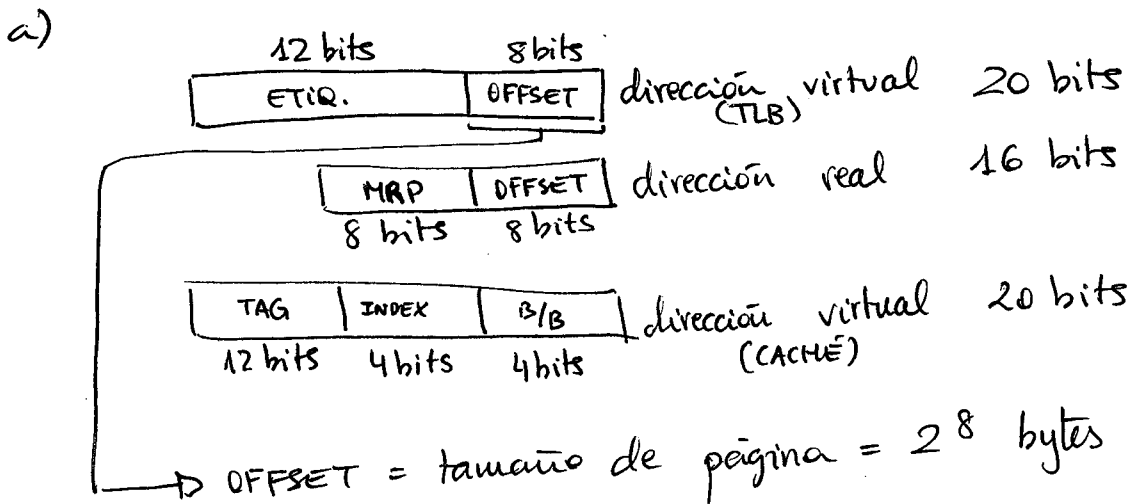 a)
12 bits 8 bits
ETIQ. OFFSET dirección virtual 20 bits
(TLB)
MRP OFFSET dirección real 16 bits
8 bits 8 bits
TAG INDEX B/B dirección virtual 20 bits
12 bits 4 bits 4 bits (CACHÉ)
OFFSET = tamaño de página = 2⁸ bytes